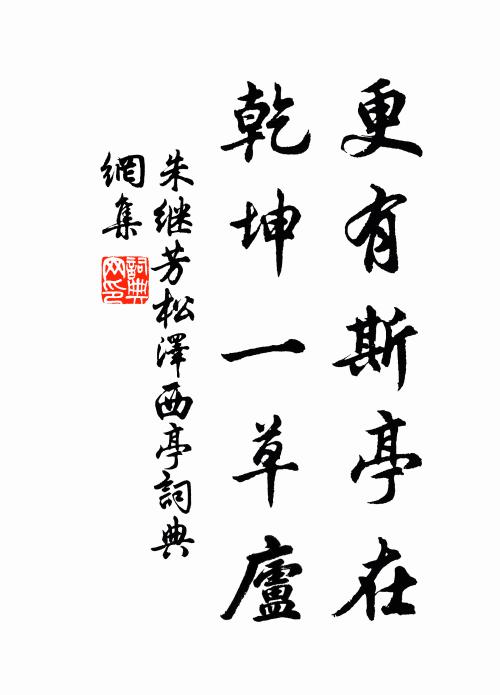 更有斯亭在
乾坤一草廬
朱继芳松澤西亭詞典
網集
詞典網印